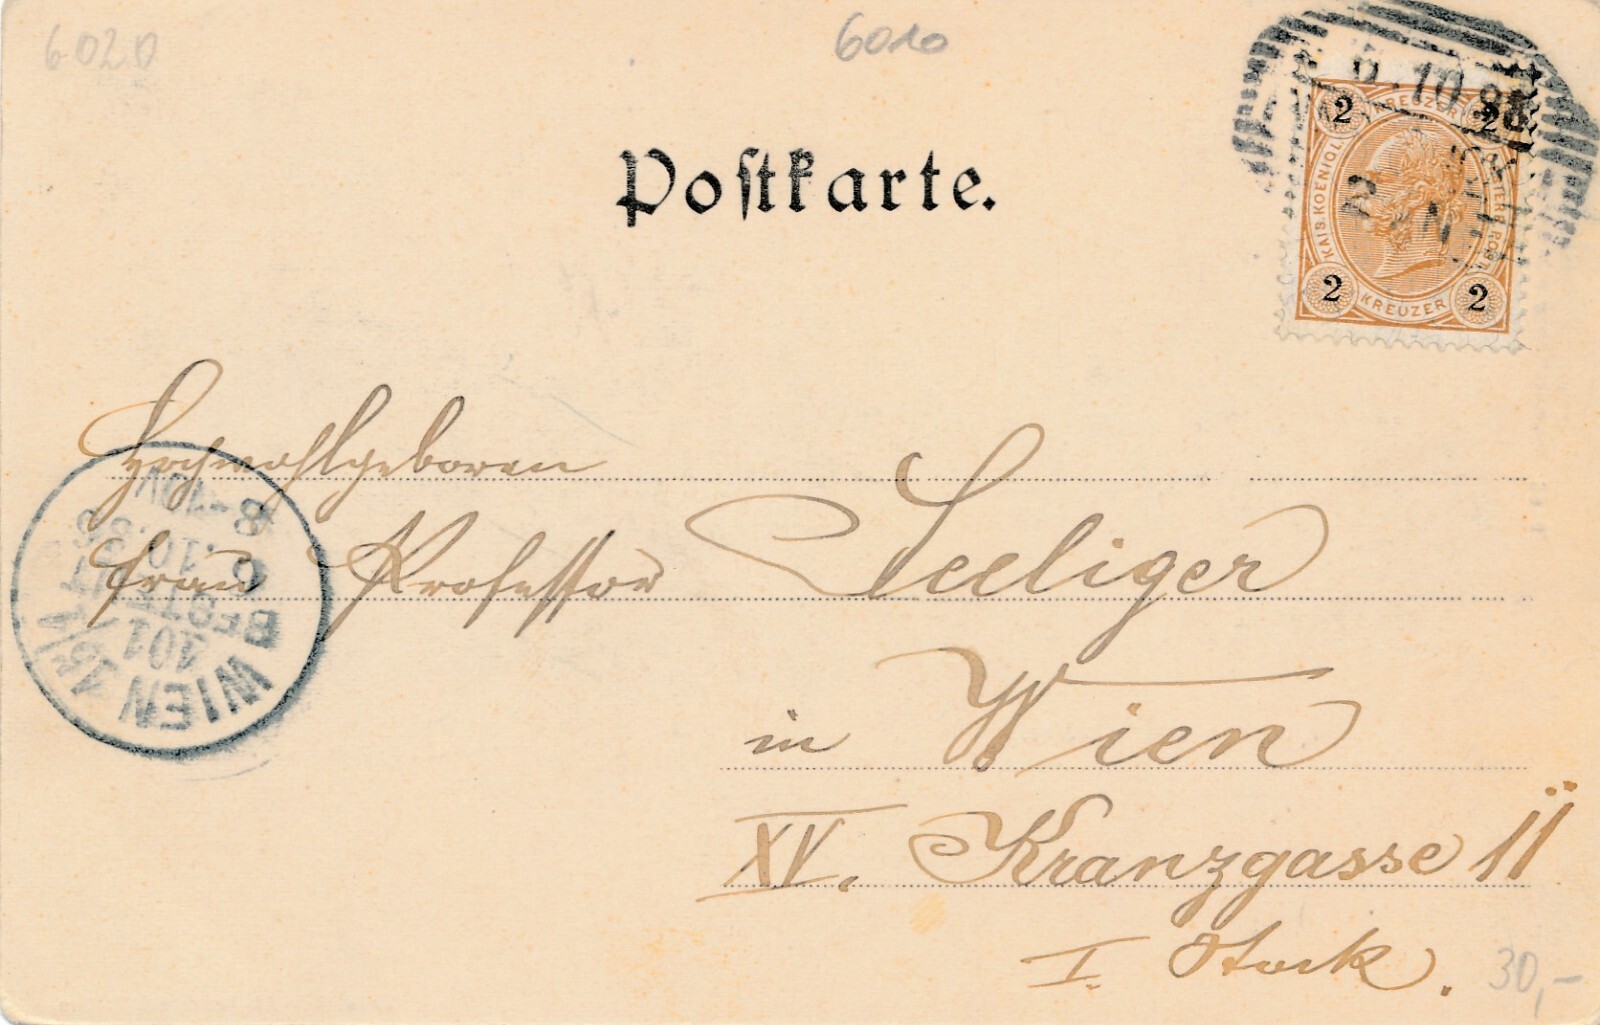 6020
6010
Postkarte.
2 KREUZER 2
KAIS. KOENIGL.
2 KREUZER 2
Hochwohlgeboren
Frau Professor Seeliger
in Wien
XV. Kranzgasse 11
I. Stock.
30,-
WIEN
101
BESTELLT